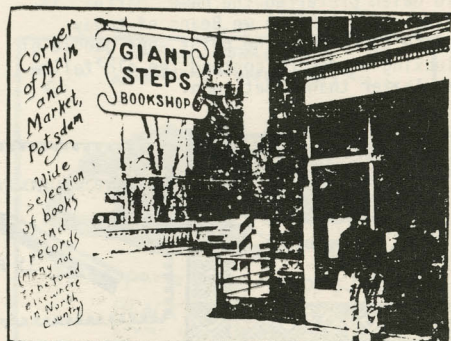 Corner
of Main
and
Market,
Potsdam
Wide
selection
of books
and
records
(Many not
to be found
elsewhere
in North
Country)
GIANT
STEPS
BOOKSHOP